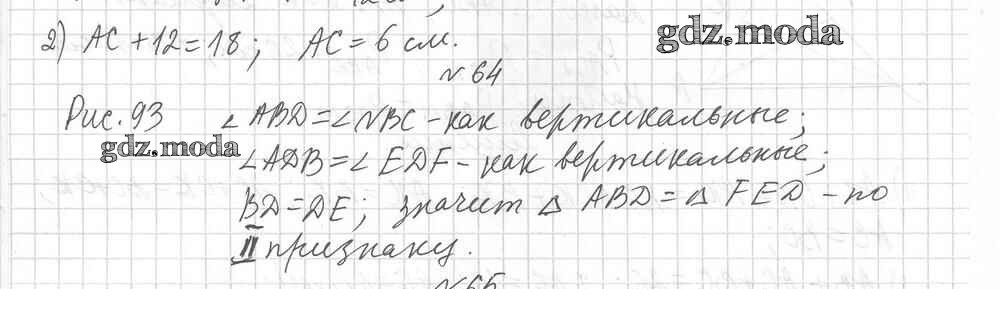 2) AC + 12 = 18; AC = 6 см.
gdz.moda
№ 64
Рис. 93 ∠ABD = ∠NBC - как вертикальные;
gdz.moda
∠ADB = ∠EDF - как вертикальные;
BD = DE; значит △ ABD = △ FED - по
II признаку.
№ 65